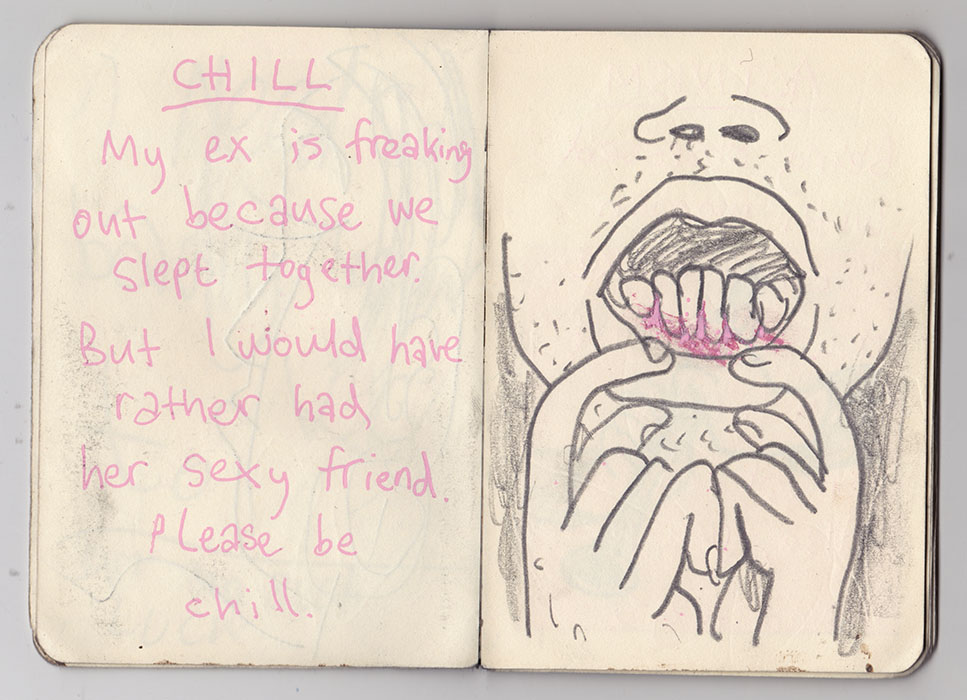 CHILL
My ex is freaking
out because we
slept together.
But I would have
rather had
her sexy friend.
Please be
chill.